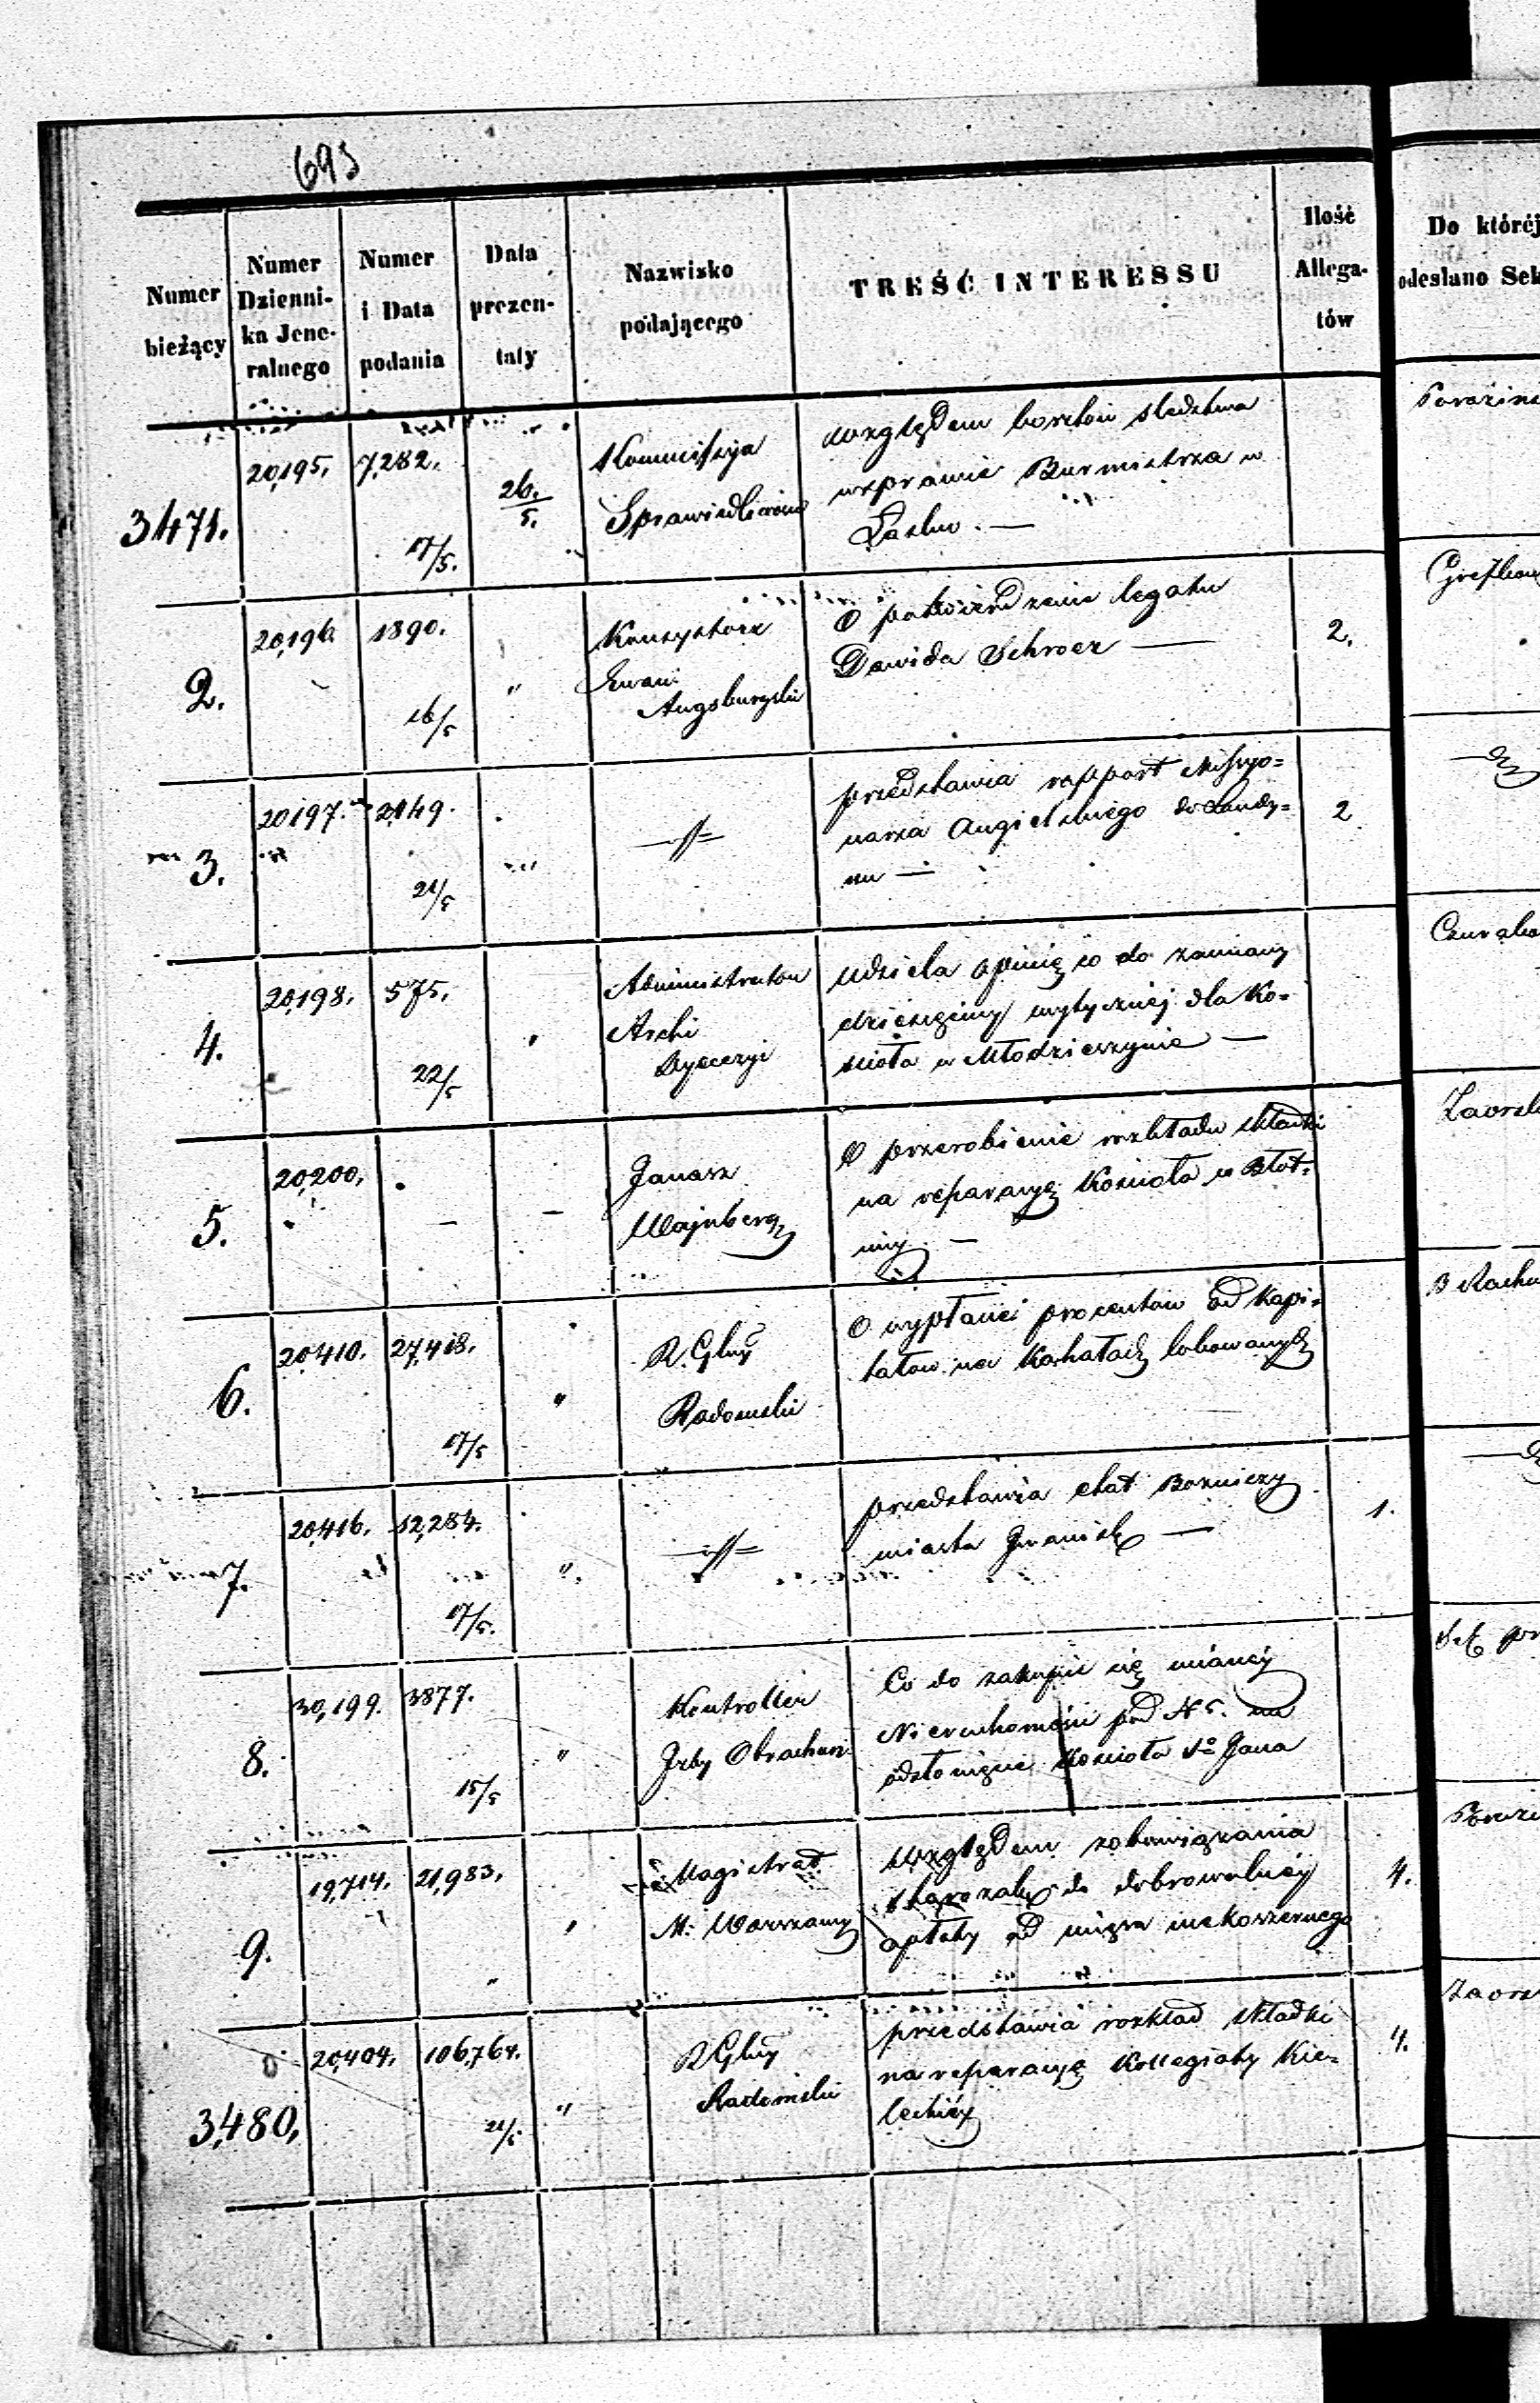 693
Numer bieżący
Numer Dzienni- ka Jene- ralnego
Numer i Data podania
Data prezen- taty
Nazwisko podającego
TREŚĆ INTERESSU
Ilość Allega- tów
Do któréj
odesłano Sek
3471.
20,195.
7,282.
17/5.
26./5.
Kommissyja
Sprawiedliwości
względem kosztów śledztwa
w sprawie Burmistrza w
Łasku. —
2.
20,196
1890.
16/5
"
Konsystorz
Ewan:
Augsburgski
O potwierdzenie legatu
Dawida Schroer —
2.
3.
20197.
2,149.
21/5
przedstawia rapport Missyo=
narza Angielskiego do Londy=
nu —
2
4.
20,198.
575.
22/5
"
Administrator
Archi
Dyecezyi
Udziela opinię co do zamiany
dziesięciny wytycznéj dla Ko=
ścioła w Młodzieszynie —
5.
20,200.
—
—
Janasz
Wajnberg
O przerobienie rozkładu składki
na reparacyę Kościoła w Błot=
nicy. —
6.
20,410.
27,418.
17/5
"
R. Glny
Radomski
O wypłacie procentów od Kapi=
tałów na Kahałach lokowanych
7.
20,416.
12,284.
17/5.
"
przedstawia etat Bożniczy
miasta Iwanisk —
1.
8.
30,199.
3877.
15/5
"
Kontroller
Izby Obrachun
Co do zakupić się mianéj
Nieruchomości pod N 5. na
odsłonięcie Kościoła Sgo Jana
9.
19,714.
21,983.
"
Magistrat
M. Warszawy
względem zobowiązania
Starozak: do dobrowolnéj
opłaty od mięsa niekoszernego
4.
3,480,
20,404.
106,764.
21/5
"
R Glny
Radomski
przedstawia rozkład składki
na reparacyę Kollegiaty Kie=
leckiéj
4.